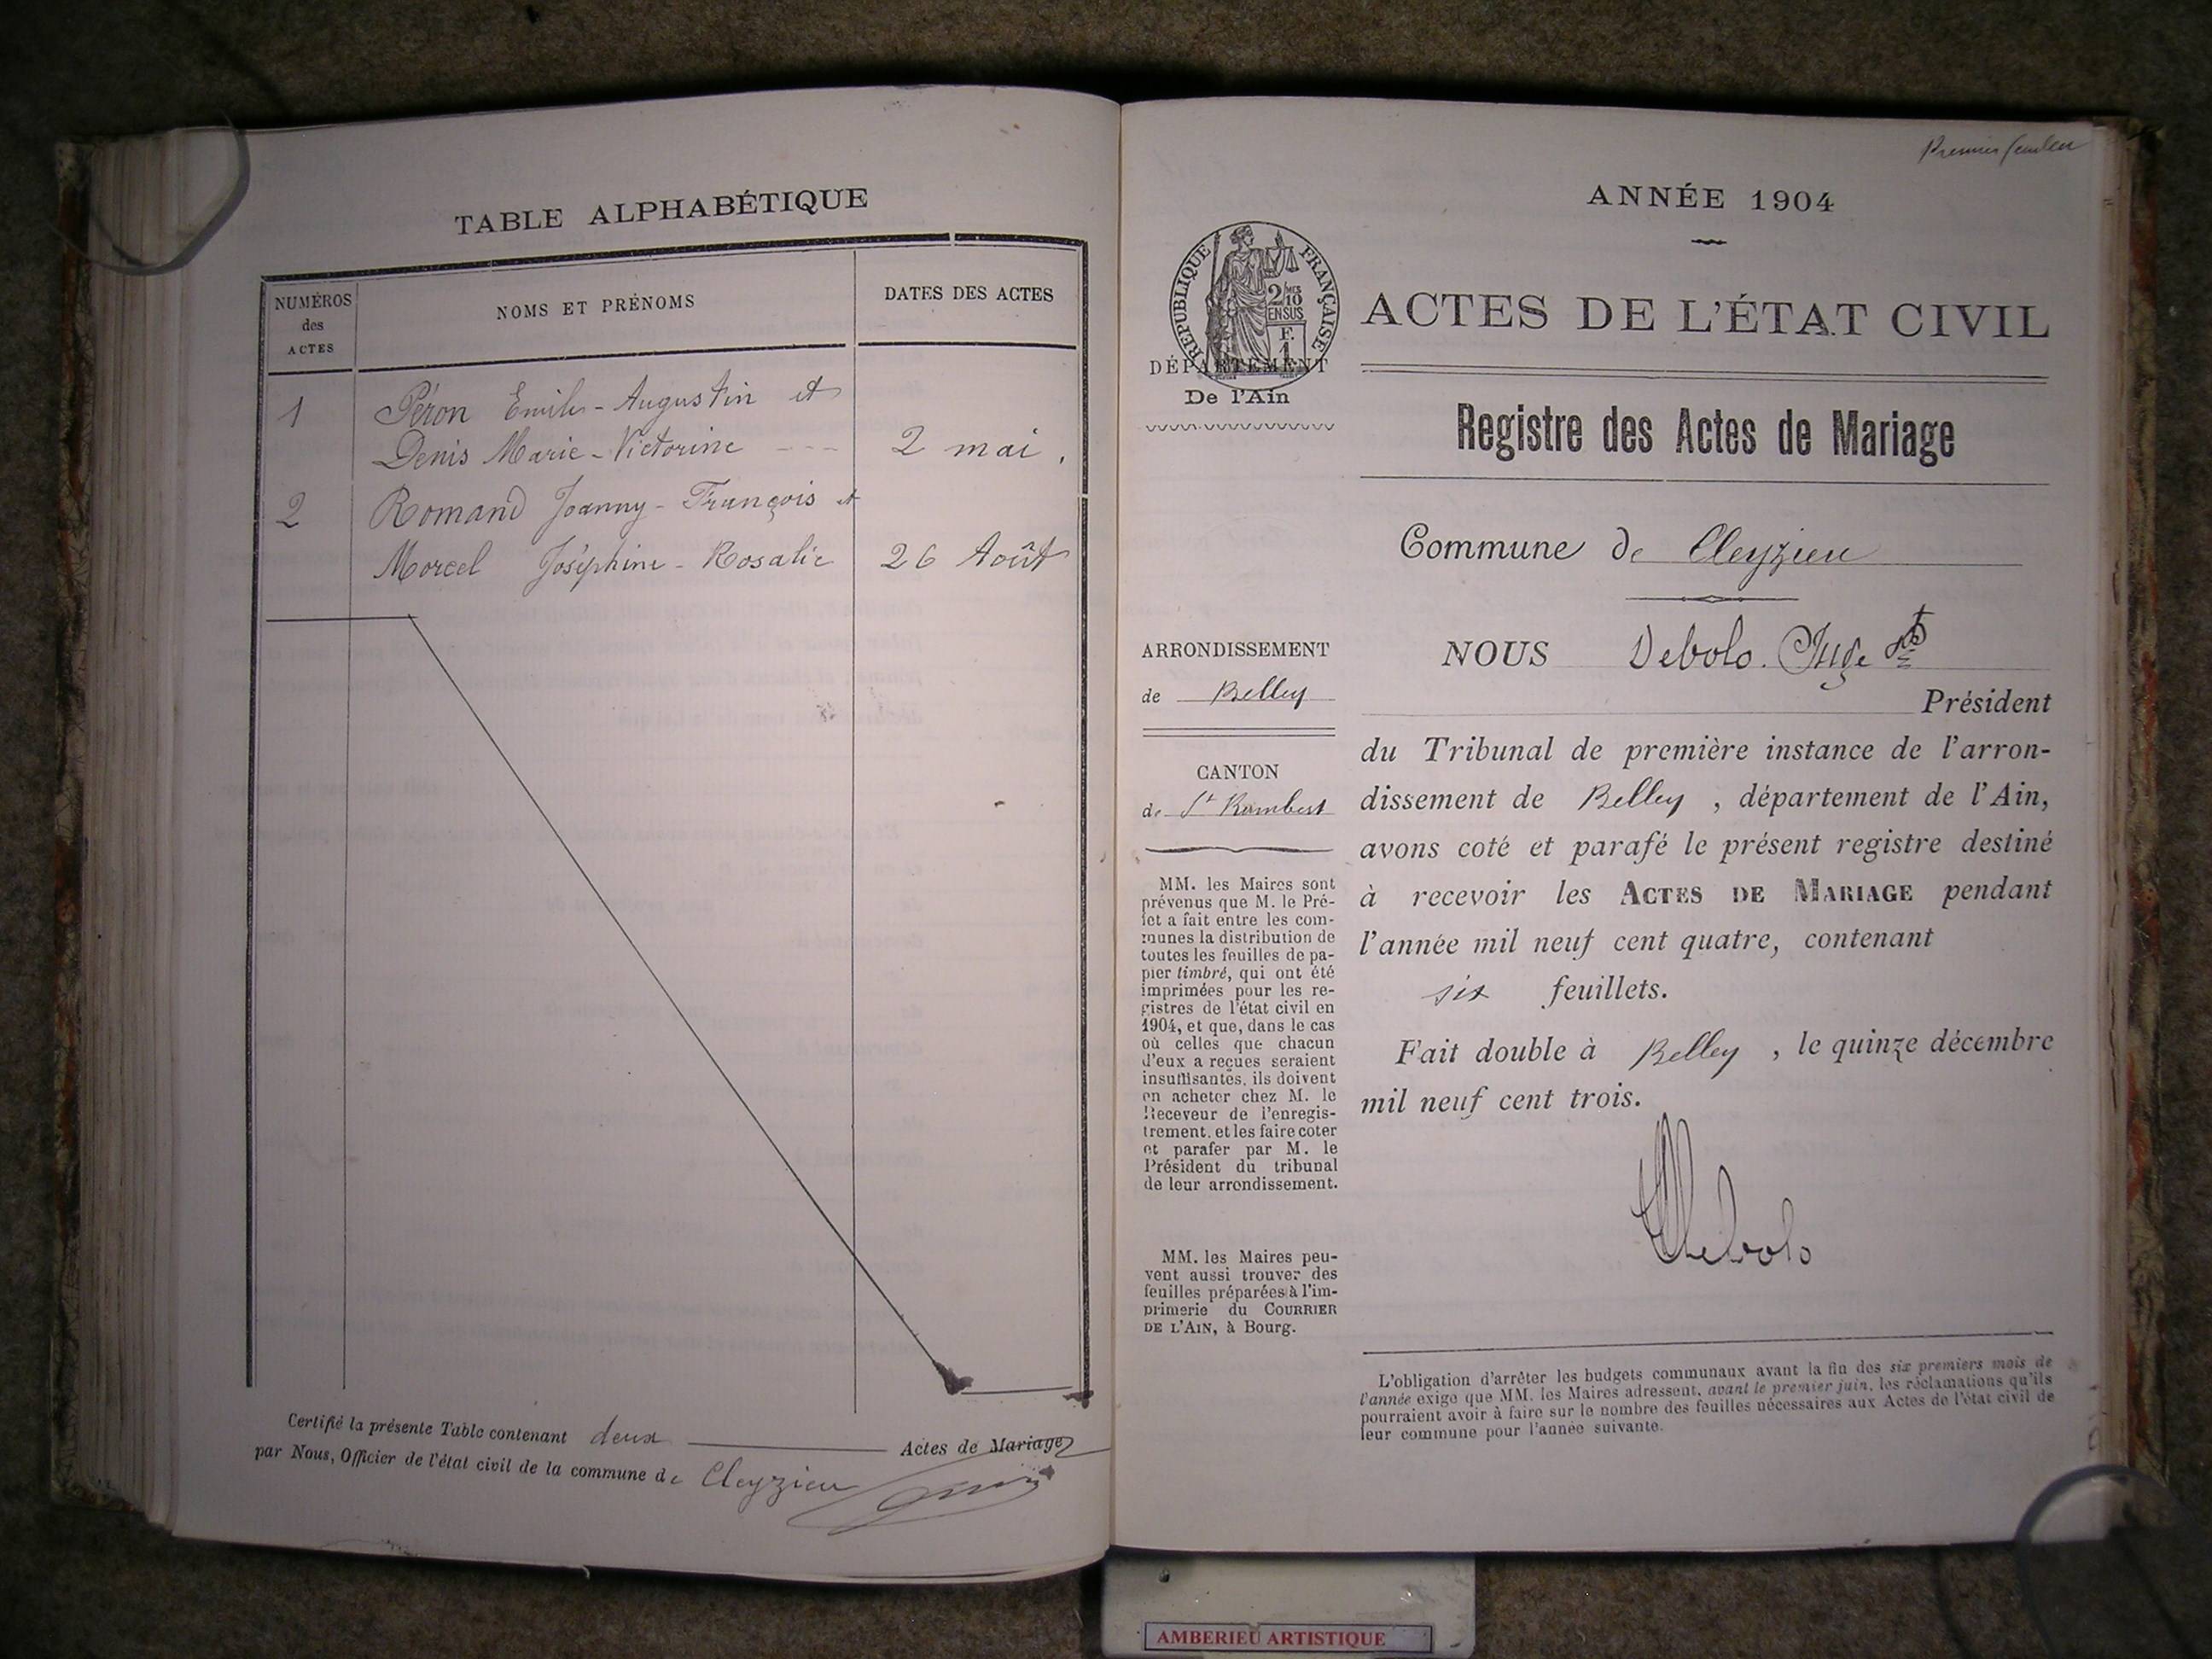 TABLE ALPHABÉTIQUE
NUMÉROS
des
ACTES
NOMS ET PRÉNOMS
DATES DES ACTES
1 Péron Emile-Augustin et
Denis Marie-Victorine --- 2 mai.
2 Romand Joanny-François et
Morcel Joséphine-Rosalie 26 Août
Certifié la présente Table contenant deux Actes de Mariage
par Nous, Officier de l'état civil de la commune de Cleyzieu
Premier feuillet
ANNÉE 1904
RÉPUBLIQUE FRANÇAISE
2/10
EN SUS
F.
1
DÉPARTEMENT
De l'Ain
ACTES DE L'ÉTAT CIVIL
Registre des Actes de Mariage
Commune de Cleyzieu
ARRONDISSEMENT
de Belley
CANTON
de St Rambert
MM. les Maires sont
prévenus que M. le Pré-
fet a fait entre les com-
munes la distribution de
toutes les feuilles de pa-
pier timbré, qui ont été
imprimées pour les re-
gistres de l'état civil en
1904, et que, dans le cas
où celles que chacun
d'eux a reçues seraient
insuffisantes, ils doivent
en acheter chez M. le
Receveur de l'enregis-
trement, et les faire coter
et parafer par M. le
Président du tribunal
de leur arrondissement.
MM. les Maires peu-
vent aussi trouver des
feuilles préparées à l'im-
primerie du COURRIER
DE L'AIN, à Bourg.
NOUS Debolo. Juge
Président
du Tribunal de première instance de l'arron-
dissement de Belley, département de l'Ain,
avons coté et parafé le présent registre destiné
à recevoir les ACTES DE MARIAGE pendant
l'année mil neuf cent quatre, contenant
six feuillets.
Fait double à Belley, le quinze décembre
mil neuf cent trois.
Debolo
L'obligation d'arrêter les budgets communaux avant la fin des six premiers mois de
l'année exige que MM. les Maires adressent, avant le premier juin, les réclamations qu'ils
pourraient avoir à faire sur le nombre des feuilles nécessaires aux Actes de l'état civil de
leur commune pour l'année suivante.
AMBERIEU ARTISTIQUE